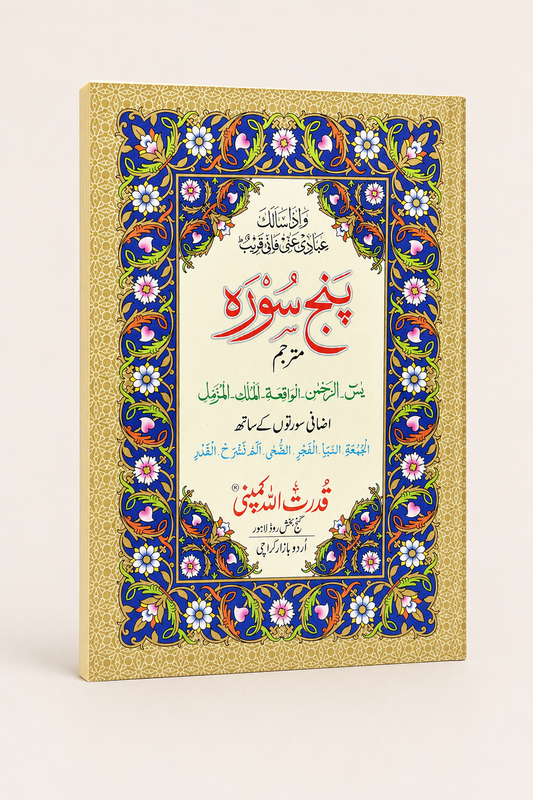 وَاِذَا سَاَلَكَ
عِبَادِیْ عَنِّیْ فَاِنِّیْ قَرِیْبٌ
پَنج سُوْرَہ
مترجم
یٰسٓ۔الرَّحْمٰن۔الْوَاقِعَة۔اَلْمُلْك۔الْمُزَّمِّل
اضافی سورتوں کے ساتھ
الْجُمُعَةِ۔النَّبَاِ۔الْفَجْرِ۔الضُّحٰی۔اَلَمْ نَشْرَحْ۔الْقَدْرِ
قُدرت اللہ کمپنی ®
گنج بخش روڈ لاہور
اُردو بازار کراچی